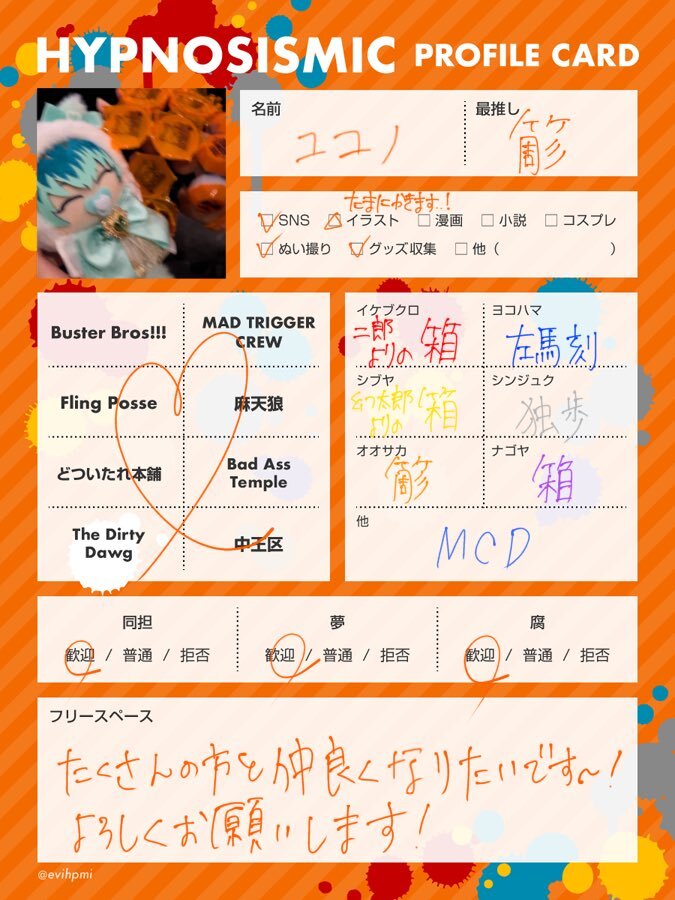 HYPNOSISMIC PROFILE CARD
名前
ユコノ
最推し
簓
たまにかきます!
SNS イラスト 漫画 小説 コスプレ
ぬい撮り グッズ収集 他 ( )
Buster Bros!!!
MAD TRIGGER
CREW
Fling Posse
麻天狼
どついたれ本舗
Bad Ass
Temple
The Dirty
Dawg
中王区
イケブクロ
二郎
よりの 箱
ヨコハマ
左馬刻
シブヤ
幻太郎
よりの 箱
シンジュク
独歩
オオサカ
簓
ナゴヤ
箱
他
MCD
同担
歓迎 / 普通 / 拒否
夢
歓迎 / 普通 / 拒否
腐
歓迎 / 普通 / 拒否
フリースペース
たくさんの方と仲良くなりたいです〜!
よろしくお願いします!
@evihpmi